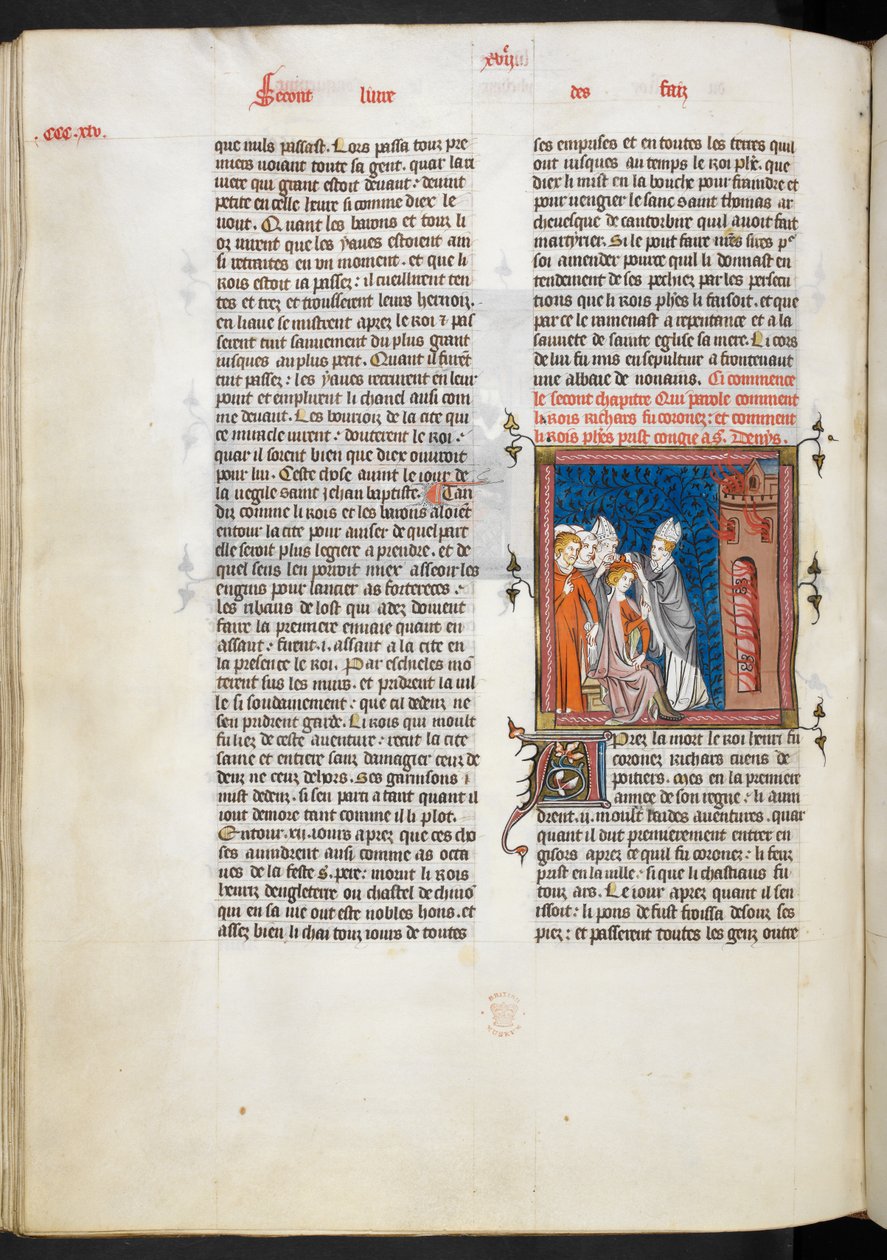 xvij.e
Secont liure des faiz
.CCC.xlv.
que nuls passast. Lors passa touz pre
miers uoiant toute sa gent. quar la ri
uiere qui grant estoit deuant: deuint
petite en celle heure si comme diex le
uout. Quant les barons et touz li
oz uirent que les yaues estoient ain
si retraites en un moment. et que li
Rois estoit ia passez: il cueillirent ten
tes et trez et trousserent leurs hernois.
en liaue se mistrent aprez le Roi ⁊ pas
serent tuit sauuement du plus grant
iusques au plus petit. Quant il furēt
tuit passez: les yaues reuirent en leur
point et emplirent li chanel ausi com
me deuant. Les bourioiz de la cite qui
ce miracle uirent: douterent le Roi:
quar il sorent bien que diex ouuroit
pour lui. Ceste chose auint le iour de
la uegile saint iehan baptiste. Tan
diz comme li Rois et les barons aloiēt
entour la cite pour auiser de quel part
elle seroit plus legiere a prendre. et de
quel sens len porroit miex asseoir les
engins pour lancier as fortereces:
les ribaus de lost qui adez doiuent
faire la premiere enuaie quant en
assaut: firent .i. assaut a la cite en
la presence le Roi. Par eschieles mō
terent sus les murs. et pridrent la uil
le si soudainement: que cil dedenz ne
sen pridrent garde. Li Rois qui moult
fu liez de ceste auenture: recut la cite
saine et entiere sanz damagier ceuz de
denz ne ceuz dehors. Ses garnisons i
mist dedenz. si sen parti atant quant il
iout demore tant comme il li plot.
Entour .xii. iours aprez que ces cho
ses auindrent ausi comme as octa
ues de la feste s. pere: morut li Rois
henriz dengleterre ou chastel de chinō
qui en sa uie out este nobles hons. et
assez bien li chai touz iours de toutes
ses emprises et en toutes les terres quil
out iusques au temps le Roi phē. que
diex li mist en la bouche pour fraindre et
pour uengier le sanc saint thomas ar
cheuesque de cantorbire quil auoit fait
martyrier. Si le pout faire nr̄es sires p᷑
soi amender pource quil li donnast en
tendement de ses pechiez par les persecu
tions que li Rois phēs li faisoit. et que
par ce le ramenast a repentance et a la
sauuete de sainte eglise sa mere. Li cors
de lui fu mis en sepulture a frontenaut
une abbaie de nonains. Ci commence
le second chapitre Qui parole comment
li Rois Richars fu coronez: et comment
li Rois phēs prist congie a S. Denys.
Aprez la mort le Roi henri fu
coronez Richars cuens de
poitiers. Mes en la premiere
annee de son regne: li auin
drent .ii. moult laides auentures. quar
quant il dut premierement entrer en
gisors aprez ce quil fu coronez: li feuz
prist en la uille. si que li chastiaus fu
touz ars. Le iour aprez quant il sen
issoit: li pons de fust froissa desouz ses
piez: et passerent toutes les genz outre
BRITISH
MUSEUM